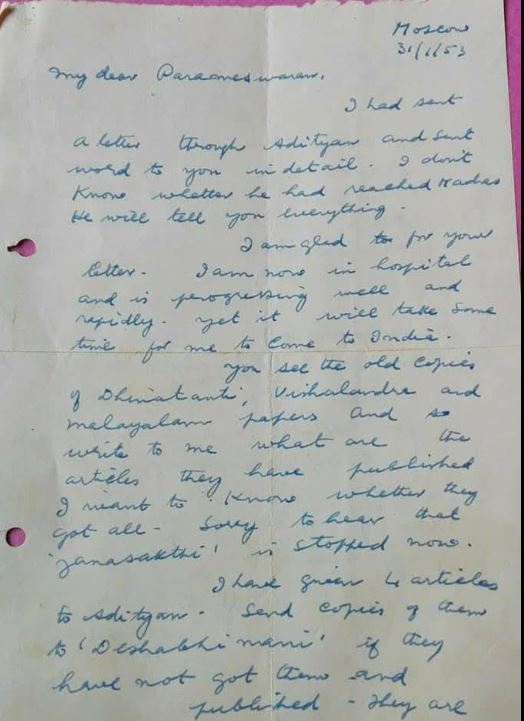 Moscow
31/1/53
My dear Parameswaran,
I had sent
a letter through Adityan and sent
word to you in detail. I don't
know whether he had reached Madras
He will tell you everything.
I am glad to for your
letter. I am now in hospital
and is progressing well and
rapidly. yet it will take some
time for me to come to India.
you see the old copies
of , Vishalandra and
malayalam papers and so
write to me what are the
articles they have published
I want to know whether they
got all - Sorry to hear that
'Janasakthi' is stopped now.
I have given 4 articles
to Adityan. Send copies of them
to 'Deshabhimani' if they
have not got them and
published - They are